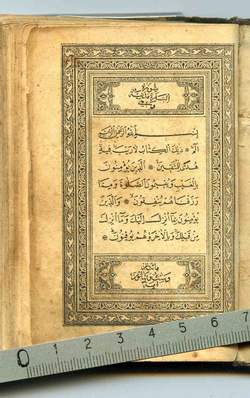 بسم الله الرحمن الرحيم
الم ذلك الكتاب لا ريب فيه
هدى للمتقين الذين يؤمنون
بالغيب ويقيمون الصلوة ومما
رزقناهم ينفقون والذين
يؤمنون بما انزل اليك وما انزل
من قبلك وبالاخرة هم يوقنون
0 1 2 3 4 5 6 7